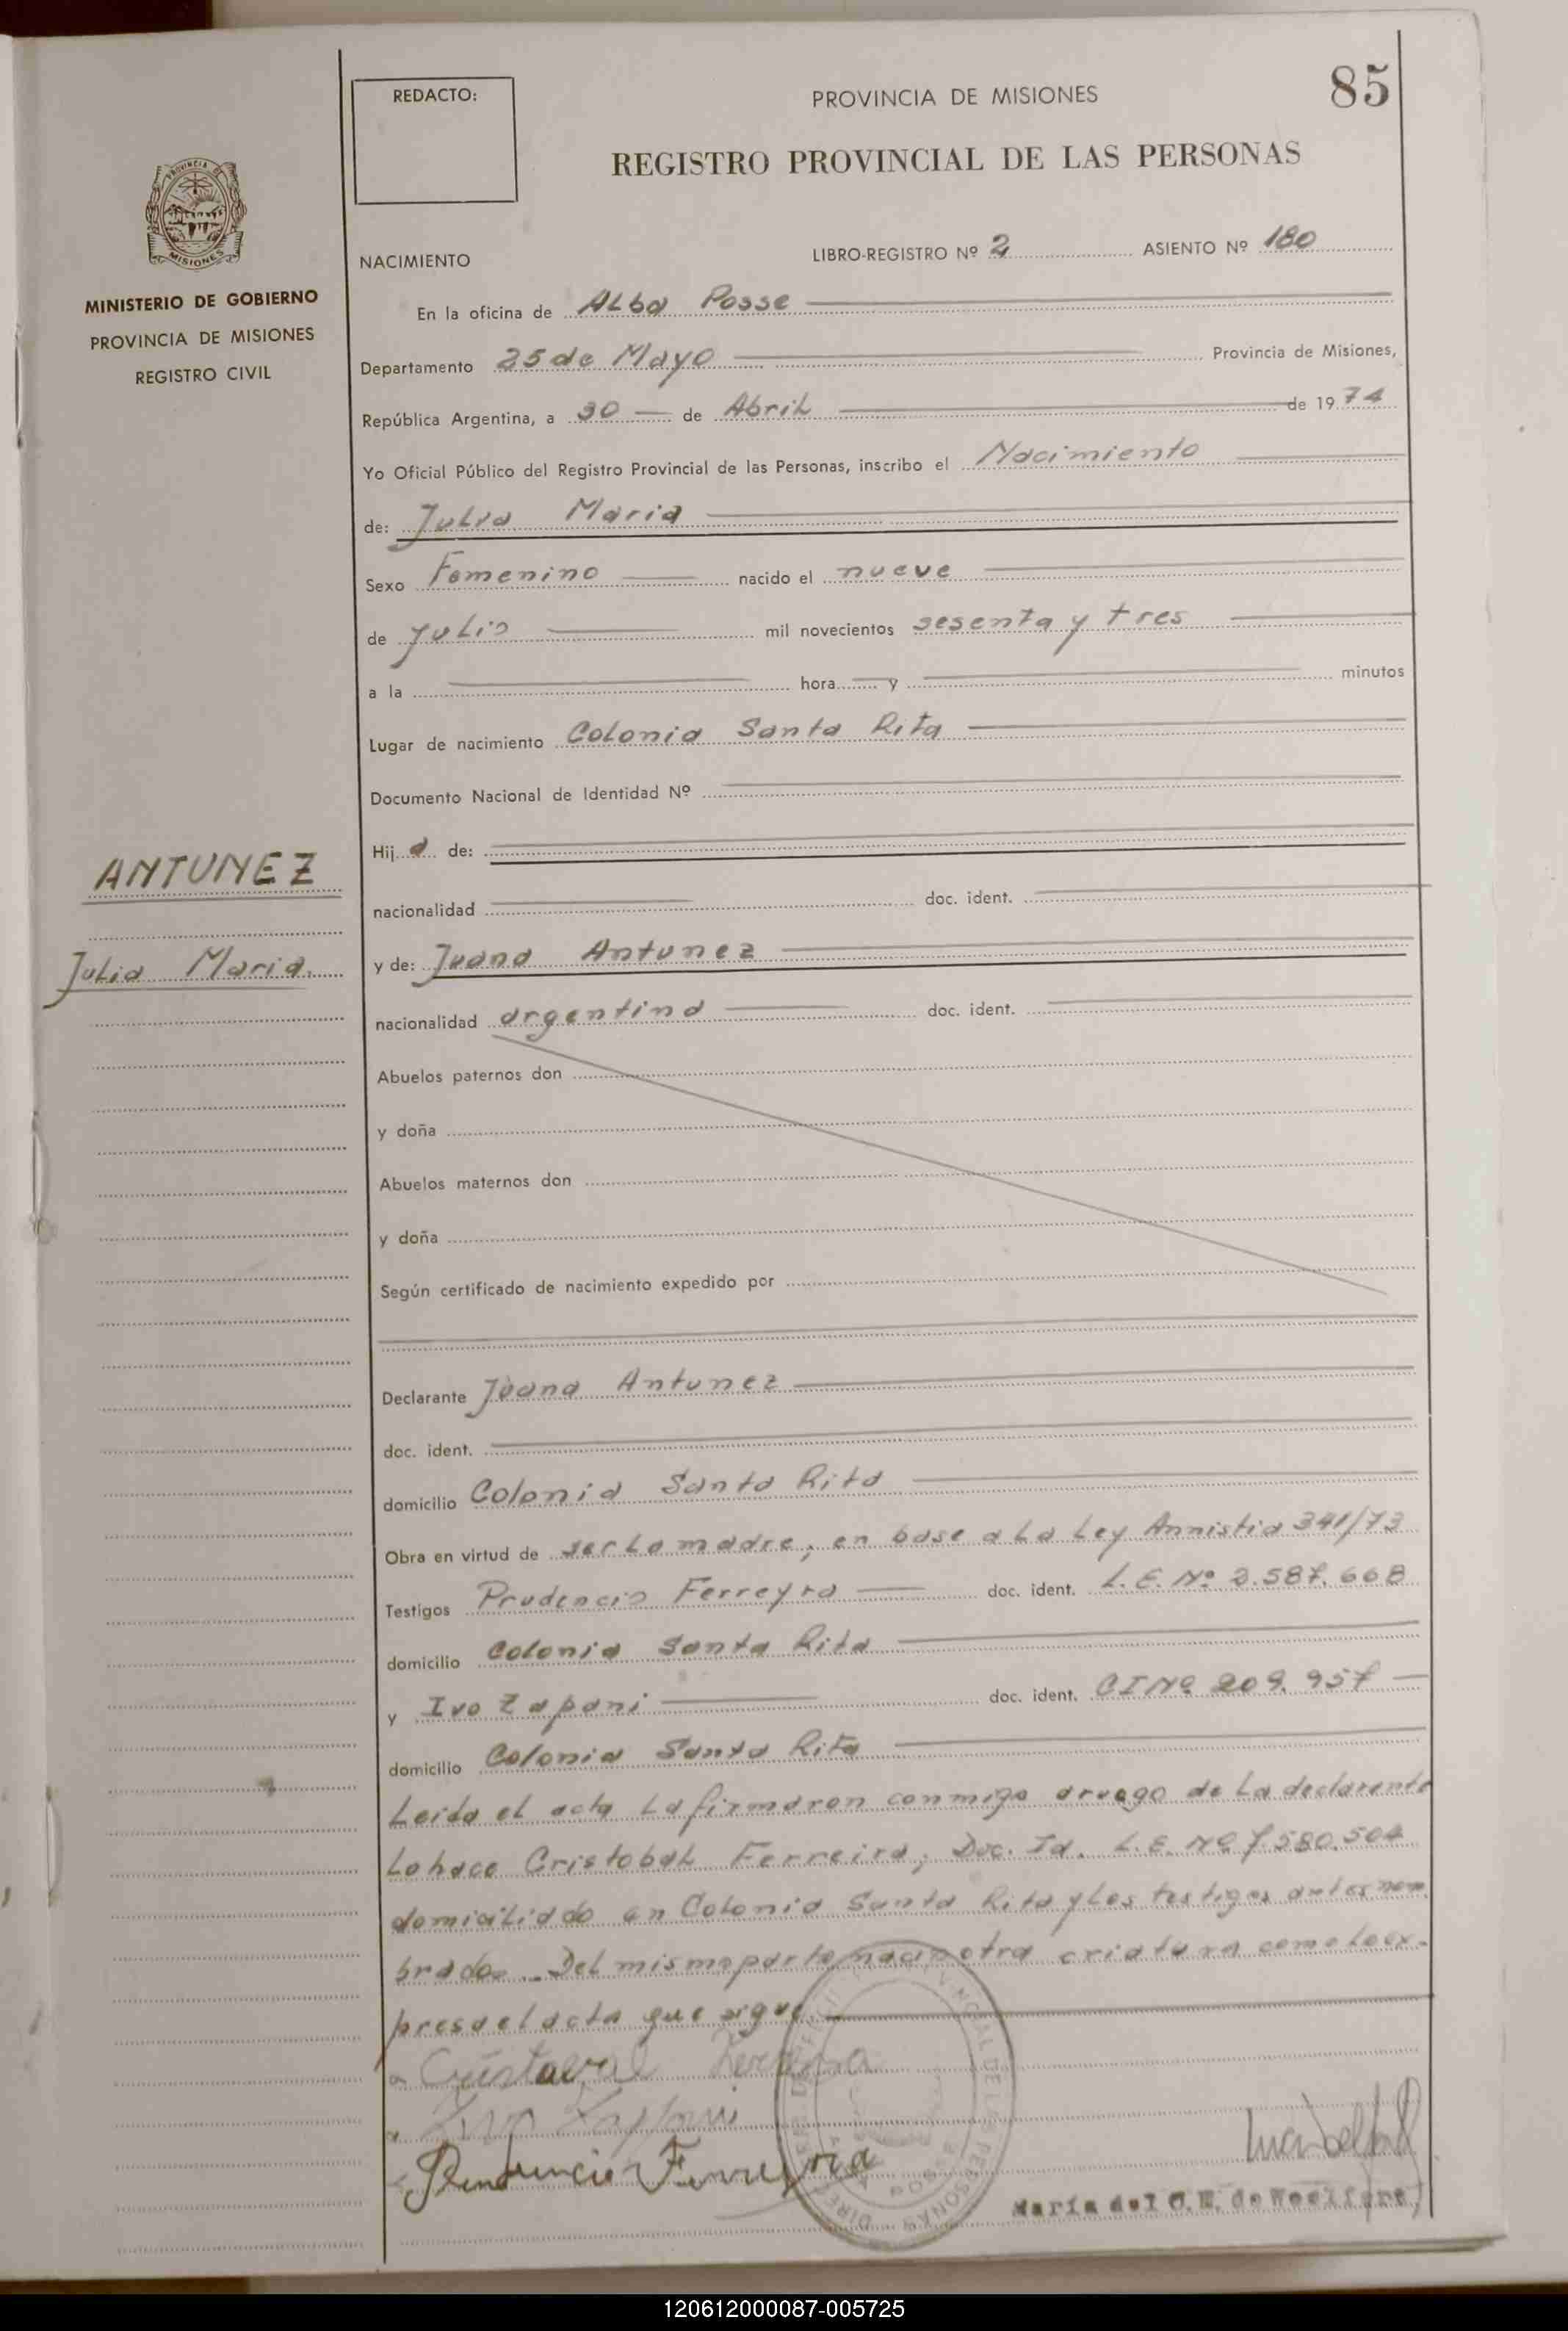 85
REDACTO:
PROVINCIA DE MISIONES
REGISTRO PROVINCIAL DE LAS PERSONAS
PROVINCIA DE
MISIONES
MINISTERIO DE GOBIERNO
PROVINCIA DE MISIONES
REGISTRO CIVIL
NACIMIENTO LIBRO-REGISTRO Nº 2 ASIENTO Nº 180
En la oficina de Alba Posse
Departamento 25 de Mayo Provincia de Misiones,
República Argentina, a 30 de Abril de 1974
Yo Oficial Público del Registro Provincial de las Personas, inscribo el Nacimiento
de: Julia Maria
Sexo Femenino nacido el nueve
de julio mil novecientos sesenta y tres
a la hora y minutos
Lugar de nacimiento Colonia Santa Rita
Documento Nacional de Identidad Nº
Hija de:
ANTUNEZ
nacionalidad doc. ident.
Julia Maria.
y de: Juana Antunez
nacionalidad argentina doc. ident.
Abuelos paternos don
y doña
Abuelos maternos don
y doña
Según certificado de nacimiento expedido por
Declarante Juana Antunez
doc. ident.
domicilio Colonia Santa Rita
Obra en virtud de ser la madre, en base a la Ley Amnistia 341/73
Testigos Prudencio Ferreyra doc. ident. L.E. Nº
domicilio Colonia Santa Rita
y Ivo Zapani doc. ident. CI Nº
domicilio Colonia Santa Rita
Leida el acta la firmaron conmigo a ruego de la declarante
lo hace Cristobal Ferreira, Doc. Id. L.E. Nº
domiciliado en Colonia Santa Rita y los testigos antes nom
brados. Del mismo parto nacio otra criatura como lo ex-
presa el acta que sigue.
Ferreira
Ivo
Prudencio Ferreyra
María del C. M. de
120612000087-005725